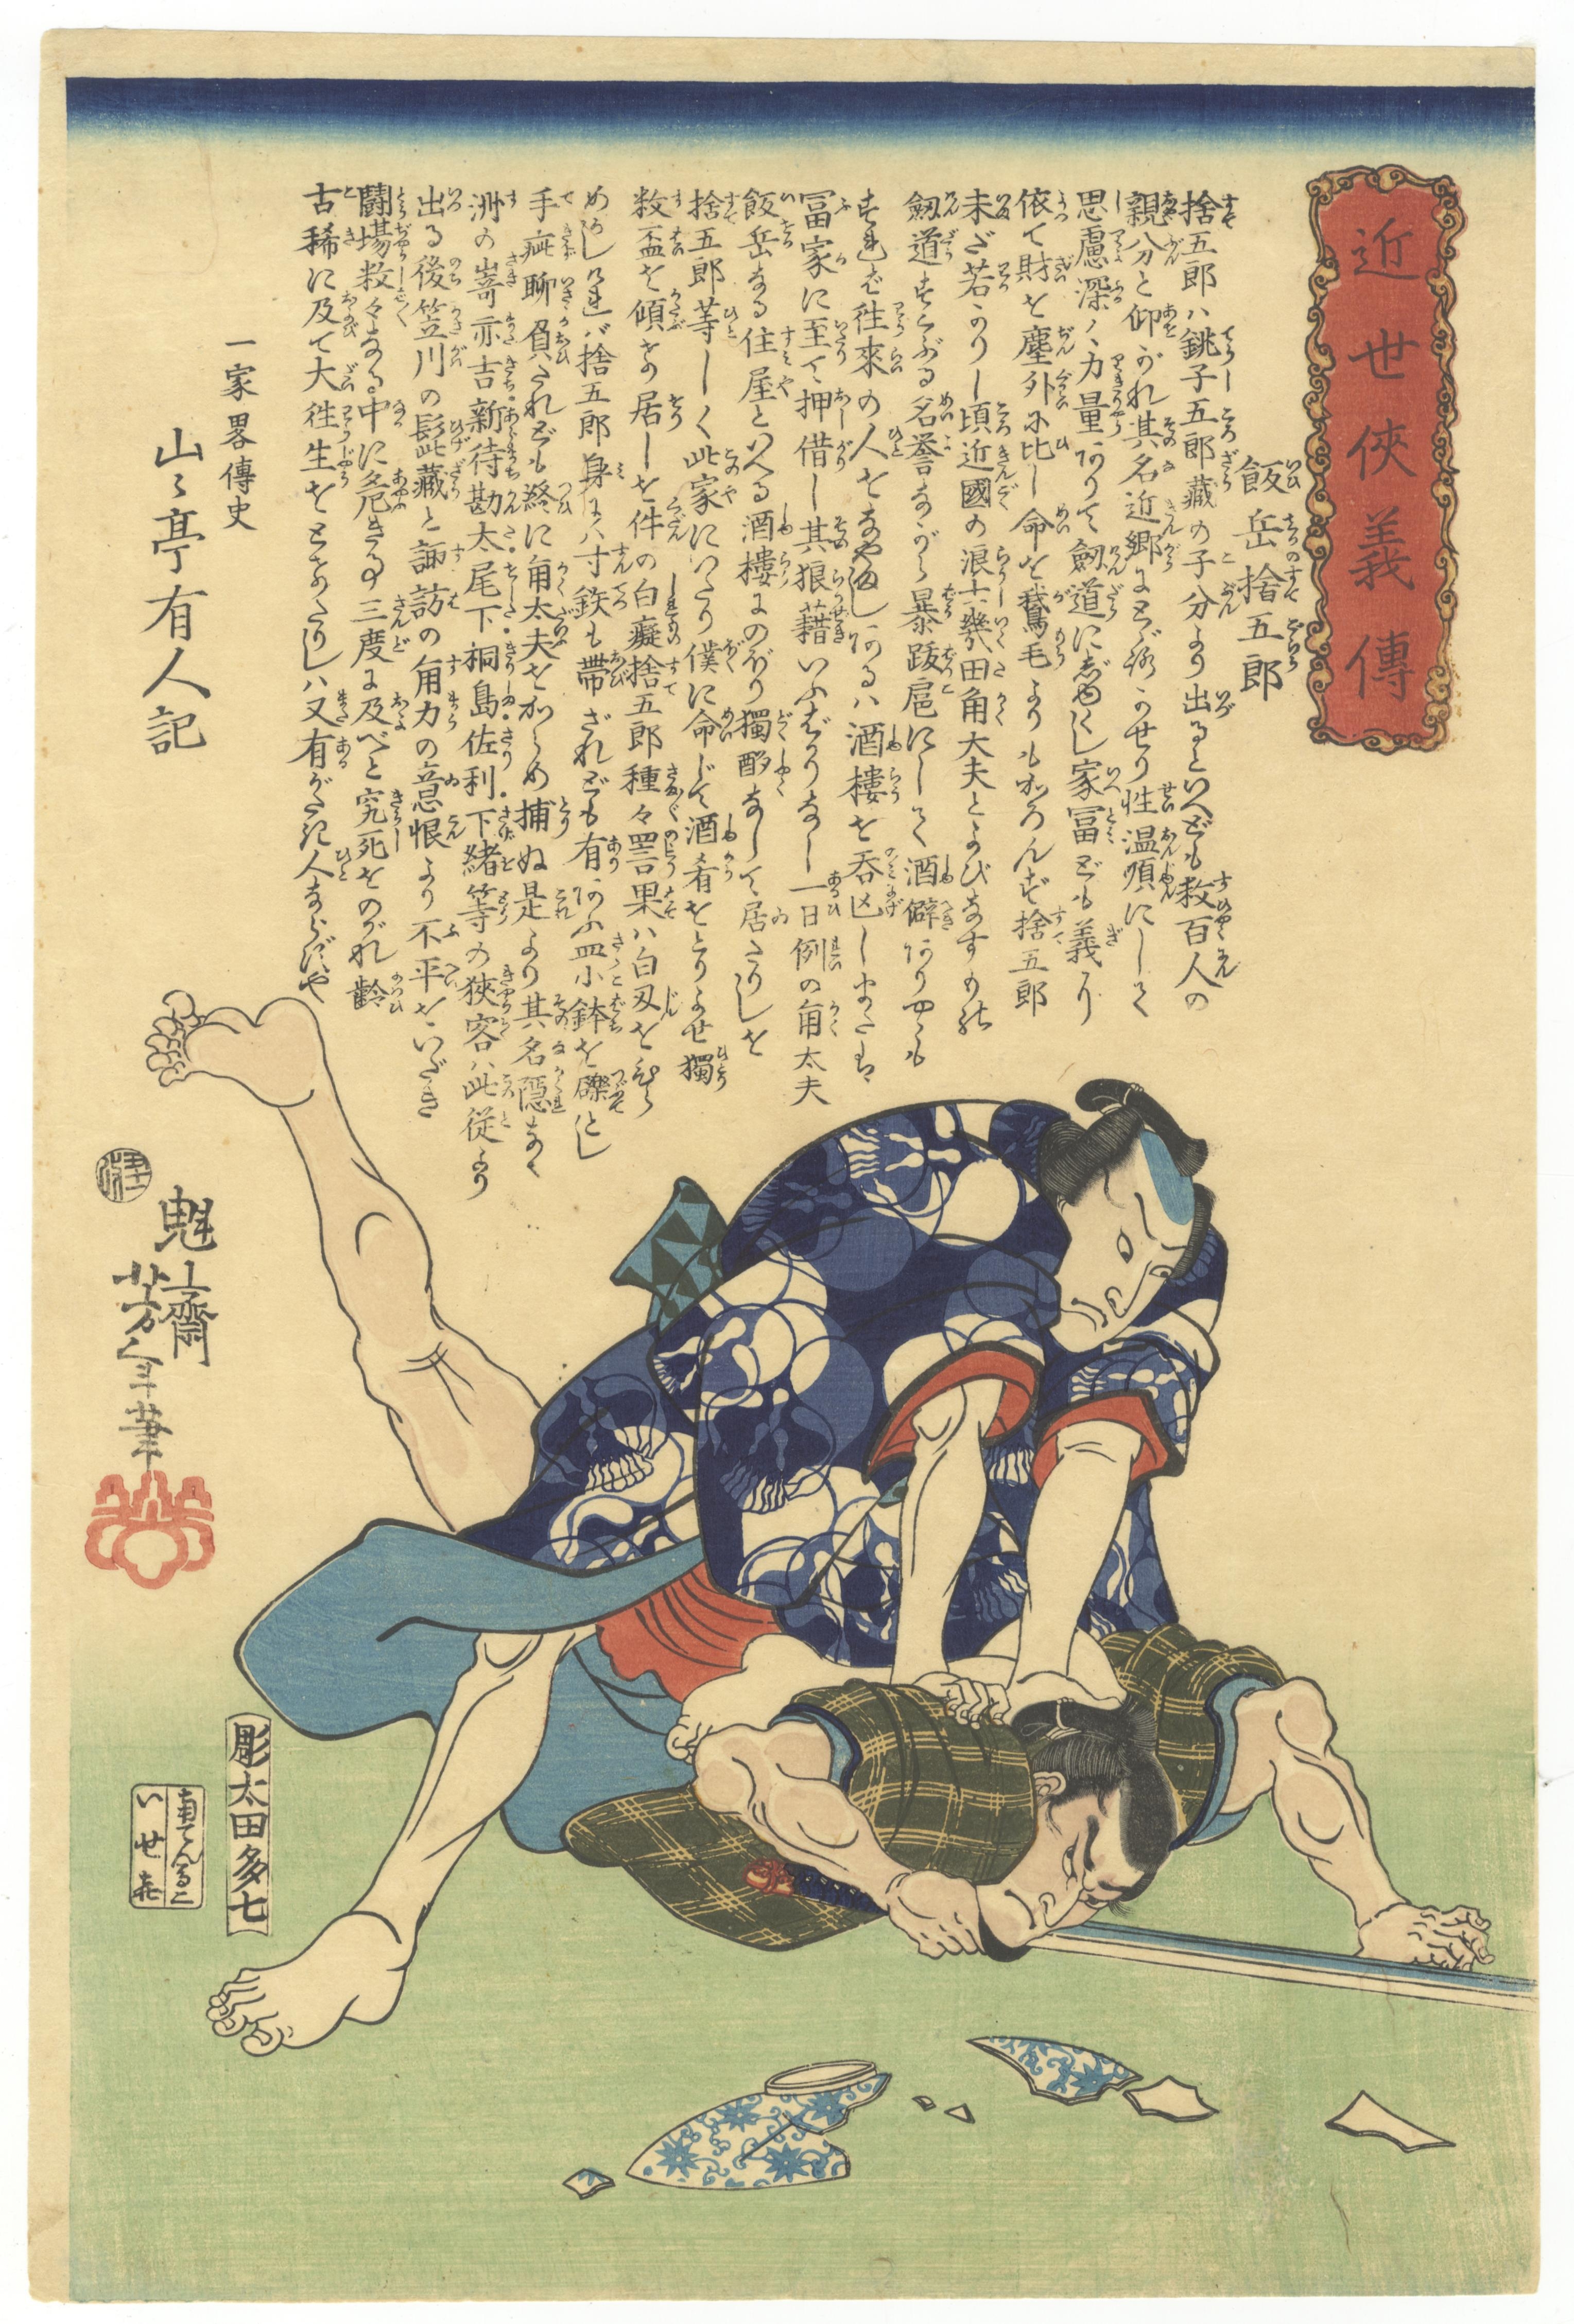 近世侠義傳
飯岳捨五郎
捨五郎ハ銚子五郎藏の子分より出るといへども数百人の
親分と仰がれ其名近郷に
性温順にして
思慮深く力量ありて劔道に
家冨ども義に
依て財を塵外に比し命を鵞毛よりもかろんず捨五郎
未だ若かりし頃近國の浪士幾田角太夫とよびなすもの
劔道
名誉ながら暴跋扈にして酒癖ありや
往來の人をなやまし
あるハ酒樓を呑
冨家に至て押借し其狼藉いふばかりなし一日例の角太夫
飯岳なる住屋といへる酒樓にのぼり獨酌なして居たりしを
捨五郎等しく此家にいたり僕に命じて酒肴をとりよせ獨
数盃を傾けて居しを件の白癡捨五郎種々詈果ハ白刄を
バ捨五郎身にハ寸鉄も帯ざれども有あふ皿小鉢を礫とし
手疵聊負たれども終に角太夫をからめ捕ぬ是より其名隠なく
洲の嵜亦吉新待勘太尾下桐島佐利下緒等の狹客ハ此従より
出る後笠川の髭藏と諏訪の角力の意恨より不平をいだき
闘場数々なる中に危きる事三度に及べど究死をのがれ齢
古稀に及て大往生をとげたりしハ又有がたき人ならずや
一家畧傳史
山々亭有人記
魁齋
芳年筆
彫太田多七
いせ㐂